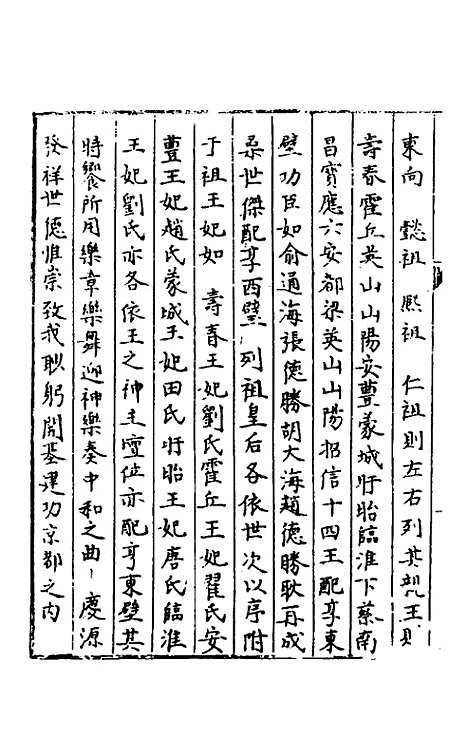 東向　懿祖　熙祖　仁祖則左右列其親王則
壽春霍丘英山山陽安豐蒙城盱眙臨淮下蔡南
昌寳應六安都梁英山山陽招信十四王配享東
壁功臣如俞通海張德勝胡大海趙德勝耿再成
桑世傑配享西壁列祖皇后各依世次以序附
于祖王妃如　壽春王妃劉氏霍丘王妃翟氏安
豐王妃趙氏蒙城王妃田氏盱眙王妃唐氏臨淮
王妃劉氏亦各依王之神主壇位亦配亨東壁其
時饗所用樂章樂舞迎神樂奏中和之曲　慶源
發祥世德惟崇致我眇躬開基建功京都之内